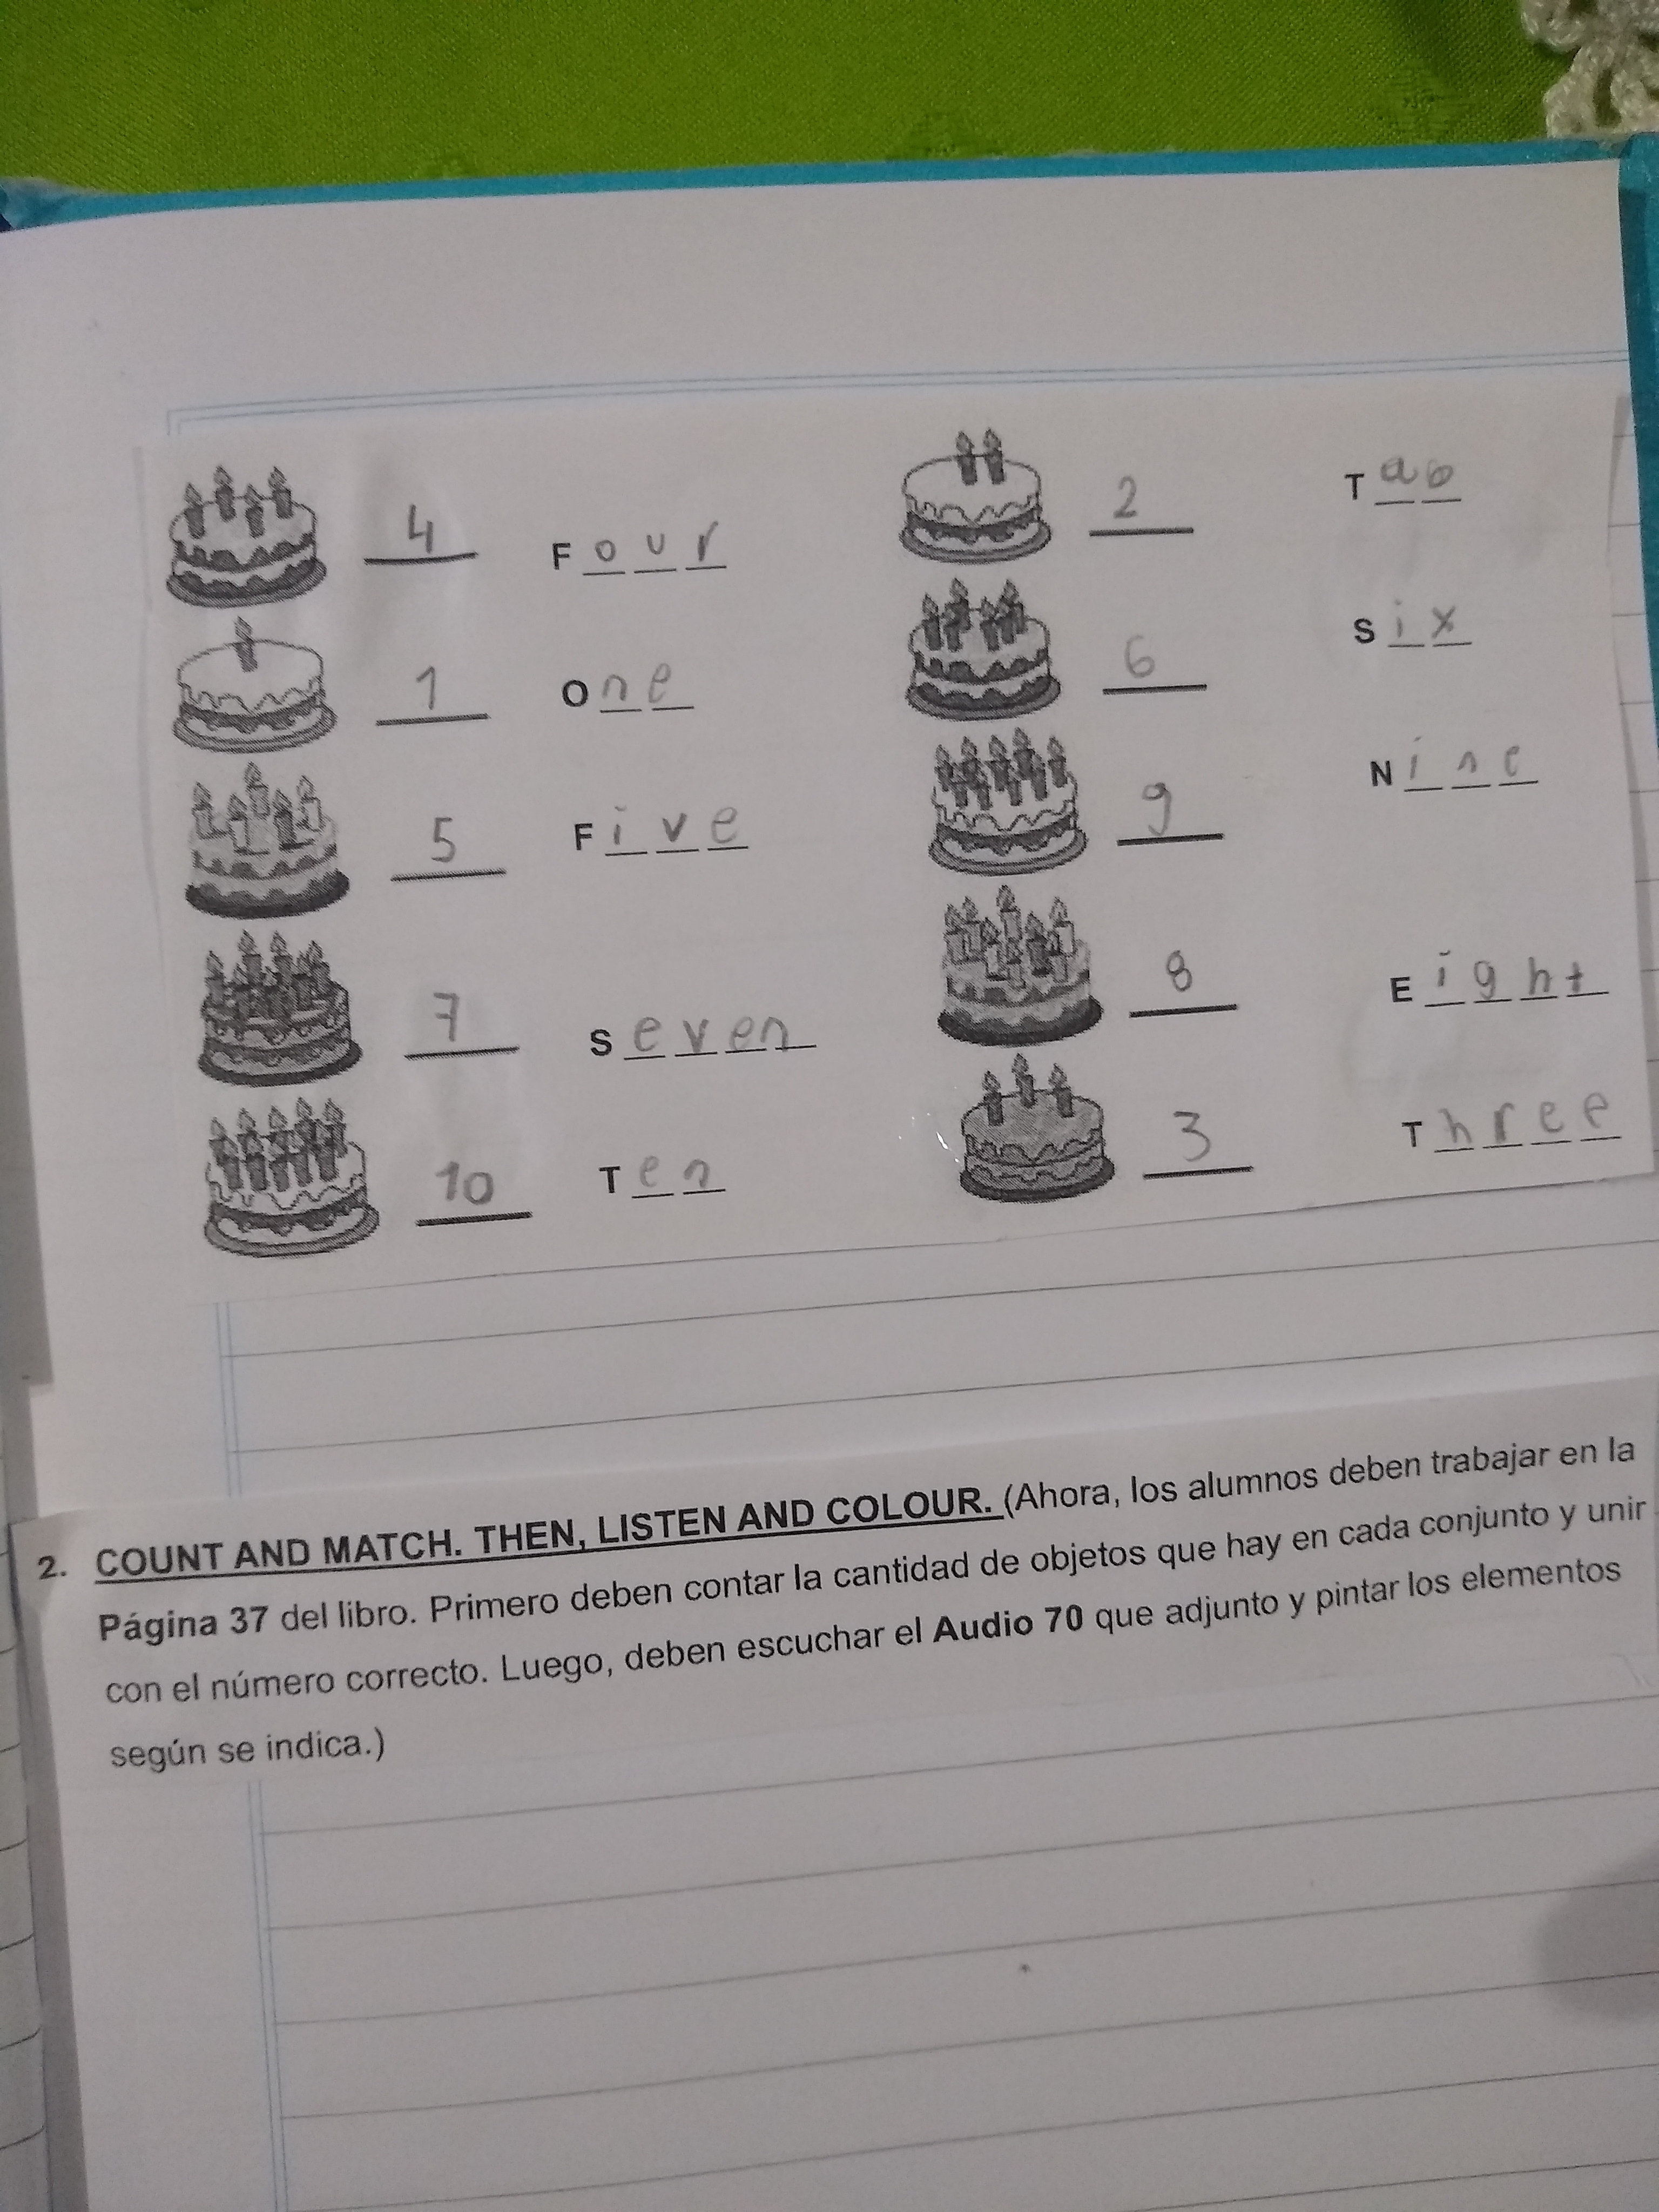 4 Four
1 One
5 Five
7 Seven
10 Ten
2 Tao
6 Six
9 Nine
8 Eight
3 Three
2. COUNT AND MATCH. THEN, LISTEN AND COLOUR. (Ahora, los alumnos deben trabajar en la
Página 37 del libro. Primero deben contar la cantidad de objetos que hay en cada conjunto y unir
con el número correcto. Luego, deben escuchar el Audio 70 que adjunto y pintar los elementos
según se indica.)